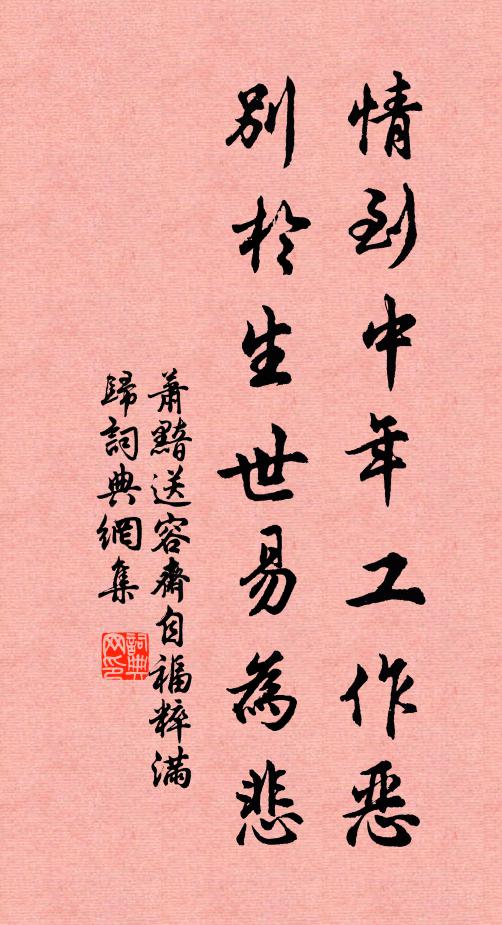 情到中年工作惡
別於生世易為悲
蕭黯送容齋自福粹滿
歸詞典網集
詞典網印